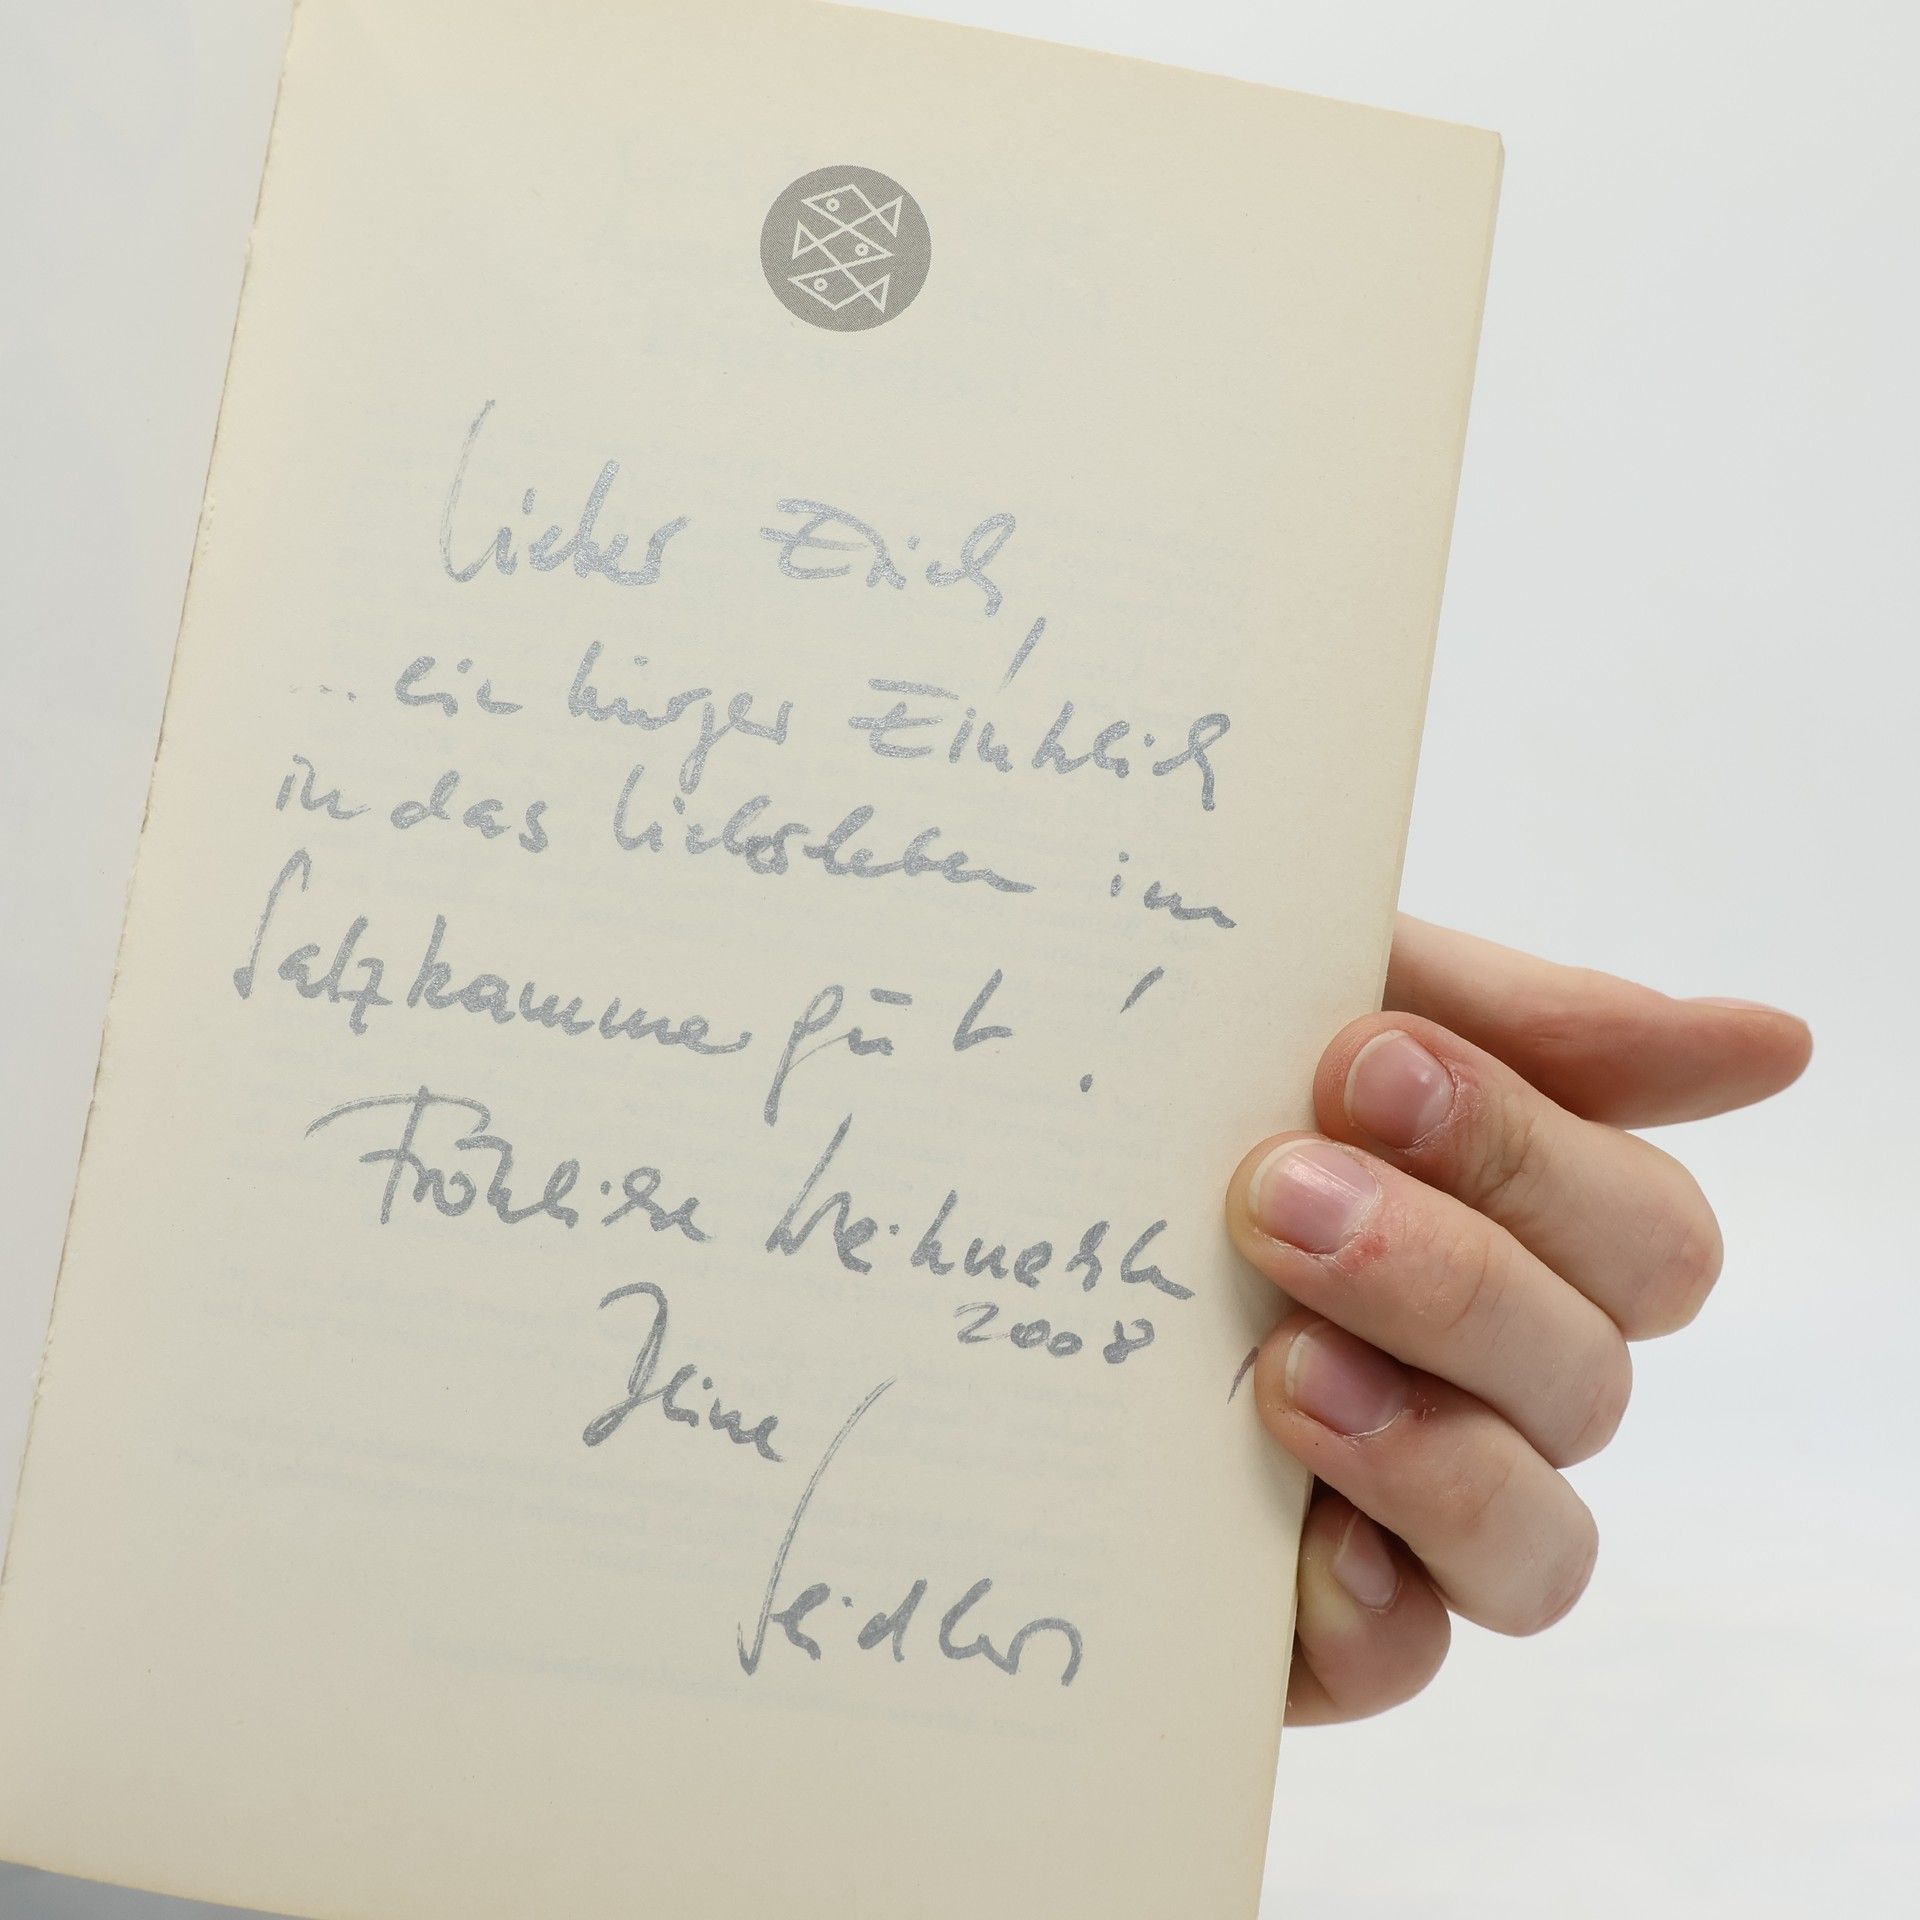 Lieber Erich,
... ein kurzer Einblick
in das Liebesleben im
Salzkammergut!
Fröhliche Weihnachten
2008
Deine
Seidlers